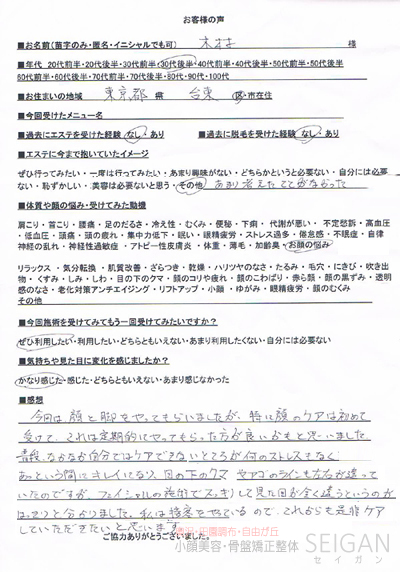 お客様の声
■お名前(苗字のみ・匿名・イニシャルでも可) 木村 様
■年代 20代前半・20代後半・30代前半・30代後半・40代前半・40代後半・50代前半・50代後半
60代前半・60代後半・70代前半・70代後半・80代・90代・100代
■お住まいの地域 東京都 県 台東 区・市在住
■今回受けたメニュー名
■過去にエステを受けた経験 なし・あり ■過去に脱毛を受けた経験 なし・あり
■エステに今まで抱いていたイメージ
ぜひ行ってみたい・一度は行ってみたい・あまり興味がない・どちらかというと必要ない・自分には必要
ない・恥ずかしい・美容は必要ないと思う・その他 あまり考えたことがなかった
■体質や顔の悩み・受けてみた動機
肩こり・首こり・腰痛・足のだるさ・冷え性・むくみ・便秘・下痢・代謝が悪い・不定愁訴・高血圧
・低血圧・頭痛・頭の疲れ・集中力低下・眠い・眼精疲労・ストレス過多・倦怠感・不眠症・自律
神経の乱れ・神経性過敏症・アトピー性皮膚炎・体重・薄毛・加齢臭・お顔の悩み
リラックス・気分転換・肌質改善・ざらつき・乾燥・ハリツヤのなさ・たるみ・毛穴・にきび・吹き出
物・くすみ・しみ・しわ・目の下のクマ・頬のコリや疲れ・額のこわばり・赤ら顔・顔の黒ずみ・透明
感のなさ・老化対策アンチエイジング・リフトアップ・小顔・ゆがみ・眼精疲労・顔のむくみ
その他
■今回施術を受けてみてもう一回受けてみたいですか?
ぜひ利用したい・利用したい・どちらともいえない・あまり利用したくない・自分には必要ない
■気持ちや見た目に変化を感じましたか?
かなり感じた・感じた・どちらともいえない・あまり感じなかった
■感想
今回は、顔と脚をやってもらいましたが、特に顔のケアは初めて
受けて、これは定期的にやってもらった方が良いかもと思いました。
普段、なかなか自分ではケアできないところが何のストレスもなく
あっという間にキレイになり、目の下のクマやアゴのラインも左右が違って
いたのですが、フェイシャルの施術でスッキリして見た目が全く違うというのが
はっきりと分かりました。私は接客をやっているので、これからも是非ケア
していただきたいと思います
ご協力ありがとうございました。
田園調布・自由が丘
小顔美容・骨盤矯正整体 SEIGAN
セイガン